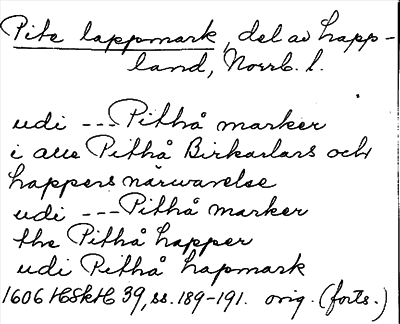 Pite lappmark, del av Lapp-
land, Norrb. l.
udi --- Pithå marker
i alle Pithå Birkarlars och
Lappers närwarelse
udi --- Pithå marker
the Pithå Lapper
udi Pithå Lapmark
1606 HSkH 39, ss. 189-191. orig. (forts.)